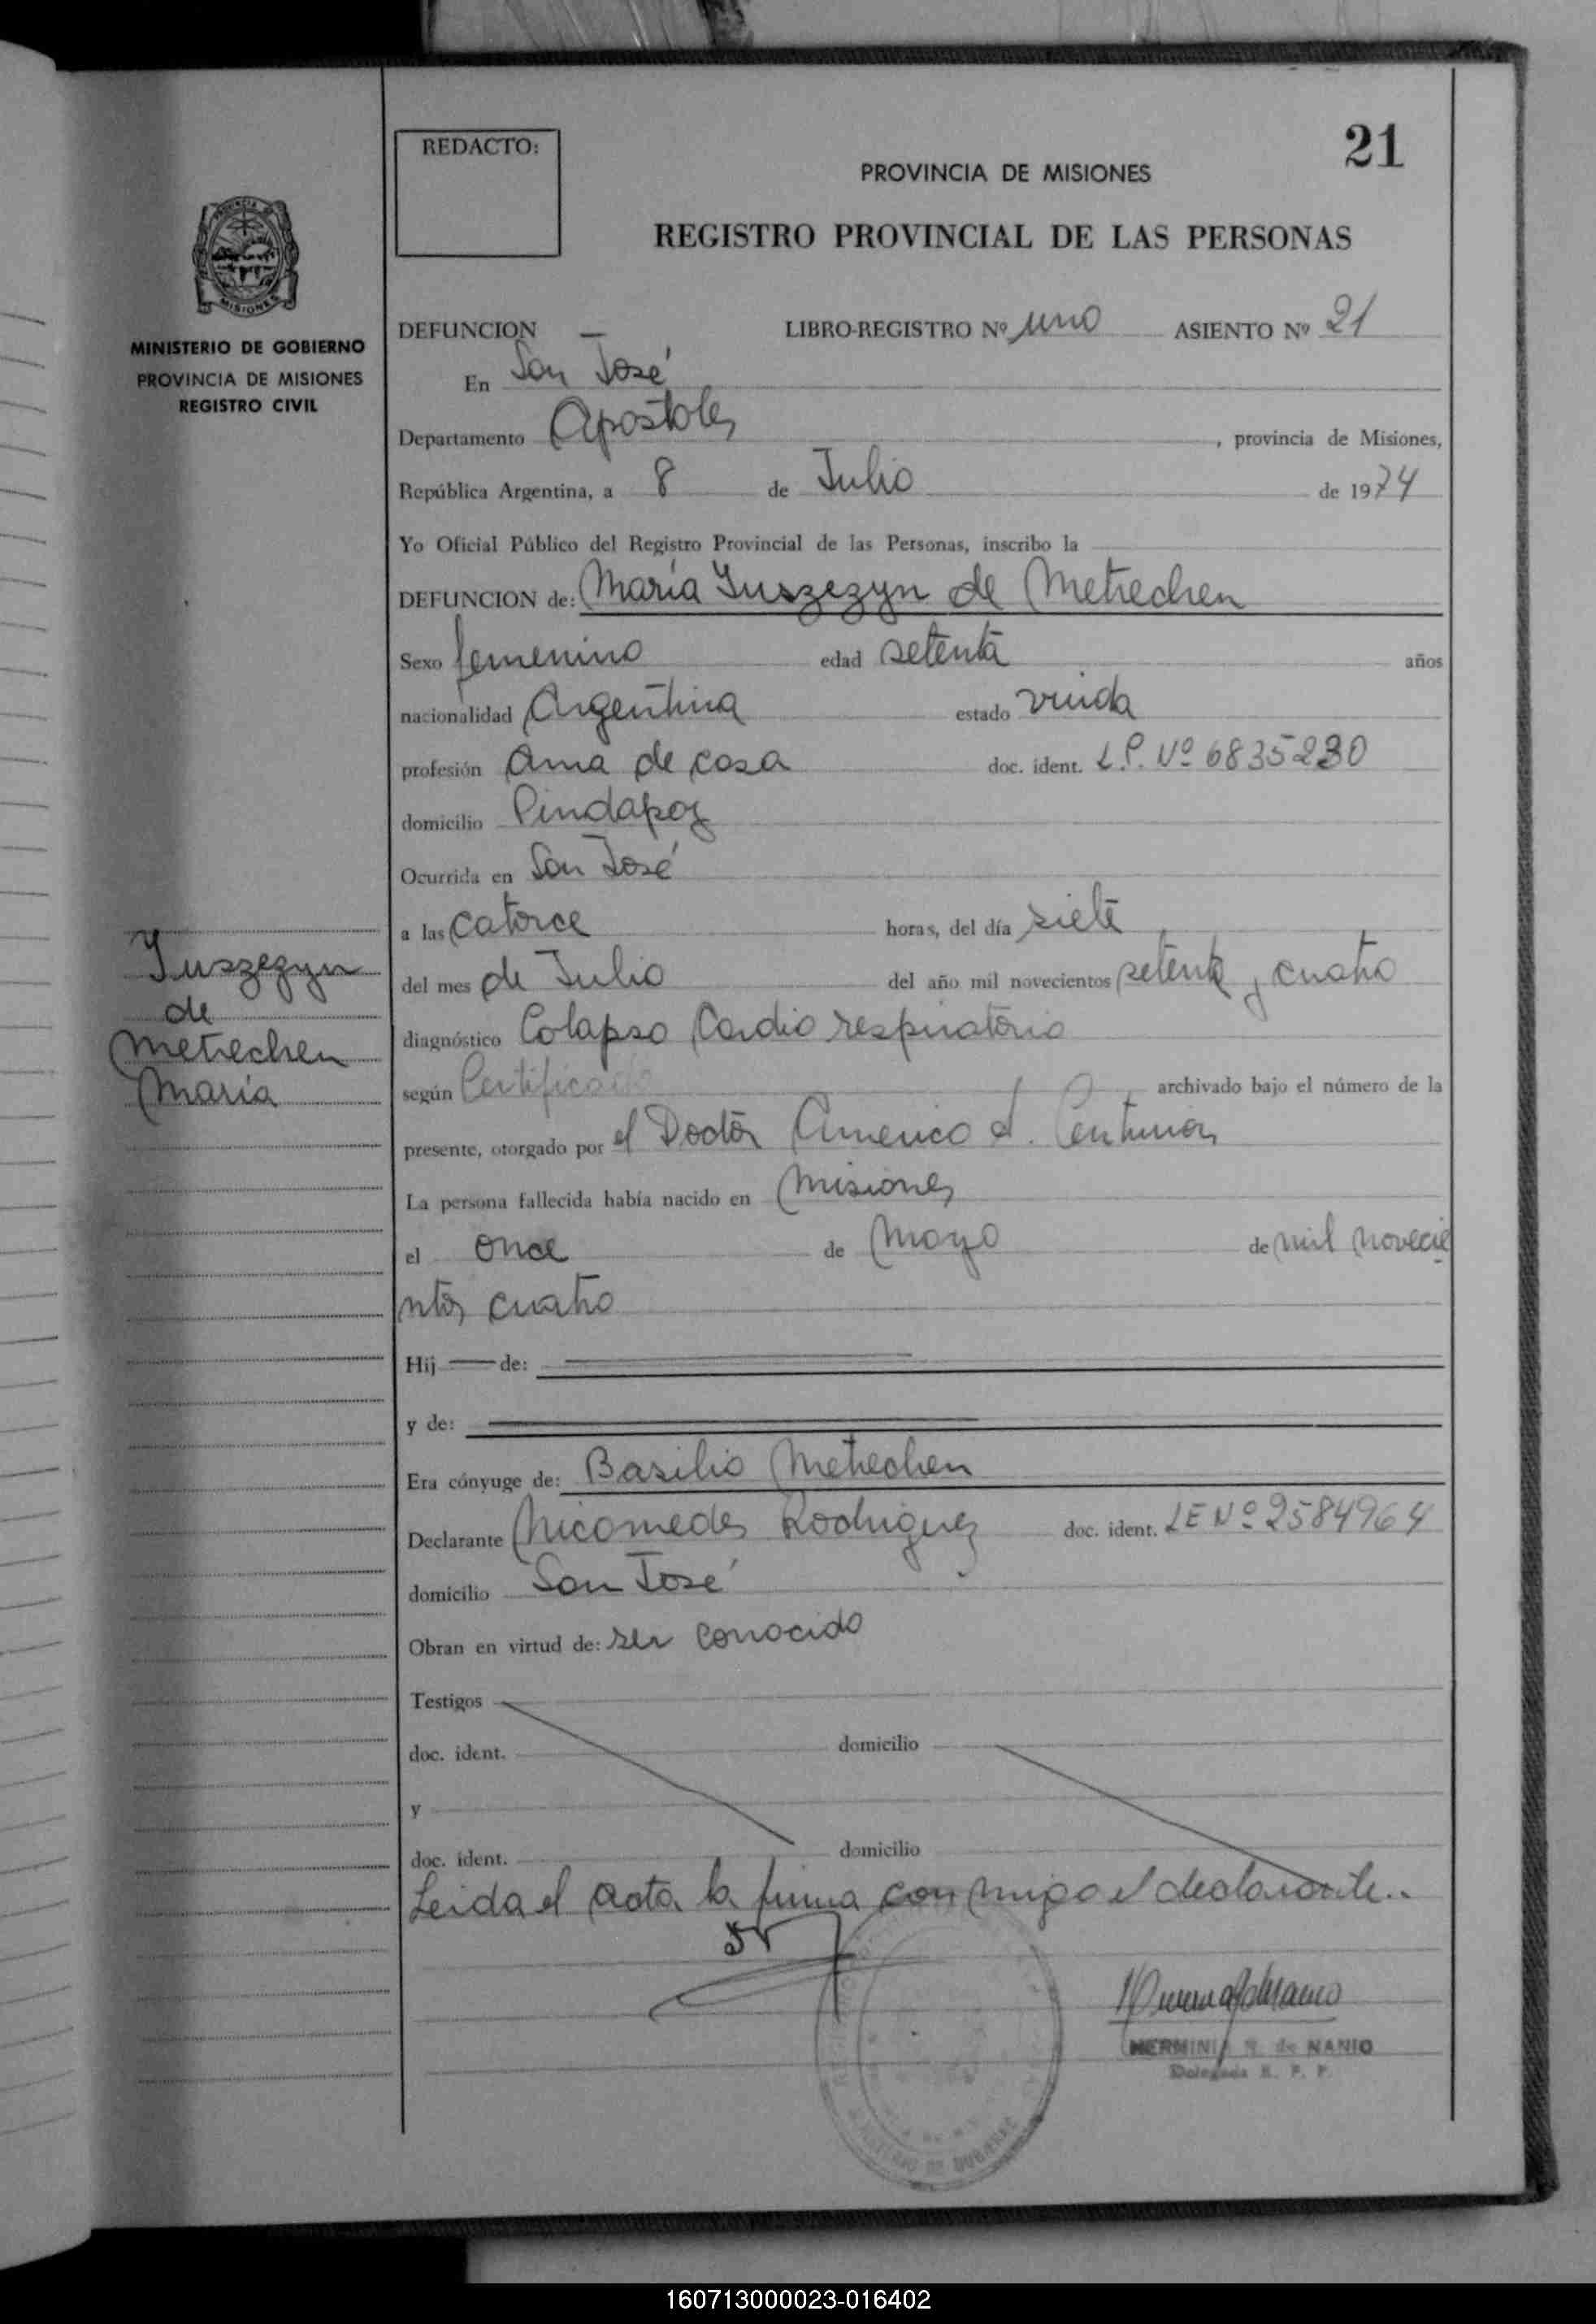 21
REDACTO:
PROVINCIA DE MISIONES
REGISTRO PROVINCIAL DE LAS PERSONAS
MISIONES
MINISTERIO DE GOBIERNO
PROVINCIA DE MISIONES
REGISTRO CIVIL
DEFUNCION — LIBRO-REGISTRO Nº uno ASIENTO Nº 21
En San José
Departamento Apostoles, provincia de Misiones,
República Argentina, a 8 de Julio de 1974
Yo Oficial Público del Registro Provincial de las Personas, inscribo la
DEFUNCION de: Maria Juszezyn de Metrechen
Sexo femenino edad setenta años
nacionalidad Argentina estado viuda
profesión Ama de casa doc. ident. L.P. Nº 6835230
domicilio Pindapoy
Ocurrida en San José
a las catorce horas, del día siete
del mes de Julio del año mil novecientos setenta y cuatro
diagnóstico Colapso Cardio respiratorio
según Certificado archivado bajo el número de la
presente, otorgado por el Doctor Americo A. Centurion
La persona fallecida había nacido en Misiones
el once de Mayo de mil novecie
ntos cuatro
Hij — de:
y de:
Era cónyuge de: Basilio Metrechen
Declarante Nicomedes Rodriguez doc. ident. LE Nº 2584964
domicilio San José
Obran en virtud de: ser conocido
Testigos
doc. ident. domicilio
y
doc. ident. domicilio
Leida el acta la firma conmigo el declarante..
Juszezyn
de
Metrechen
Maria
HERMINIA R. de NANIO
Delegada R. P. P.
160713000023-016402